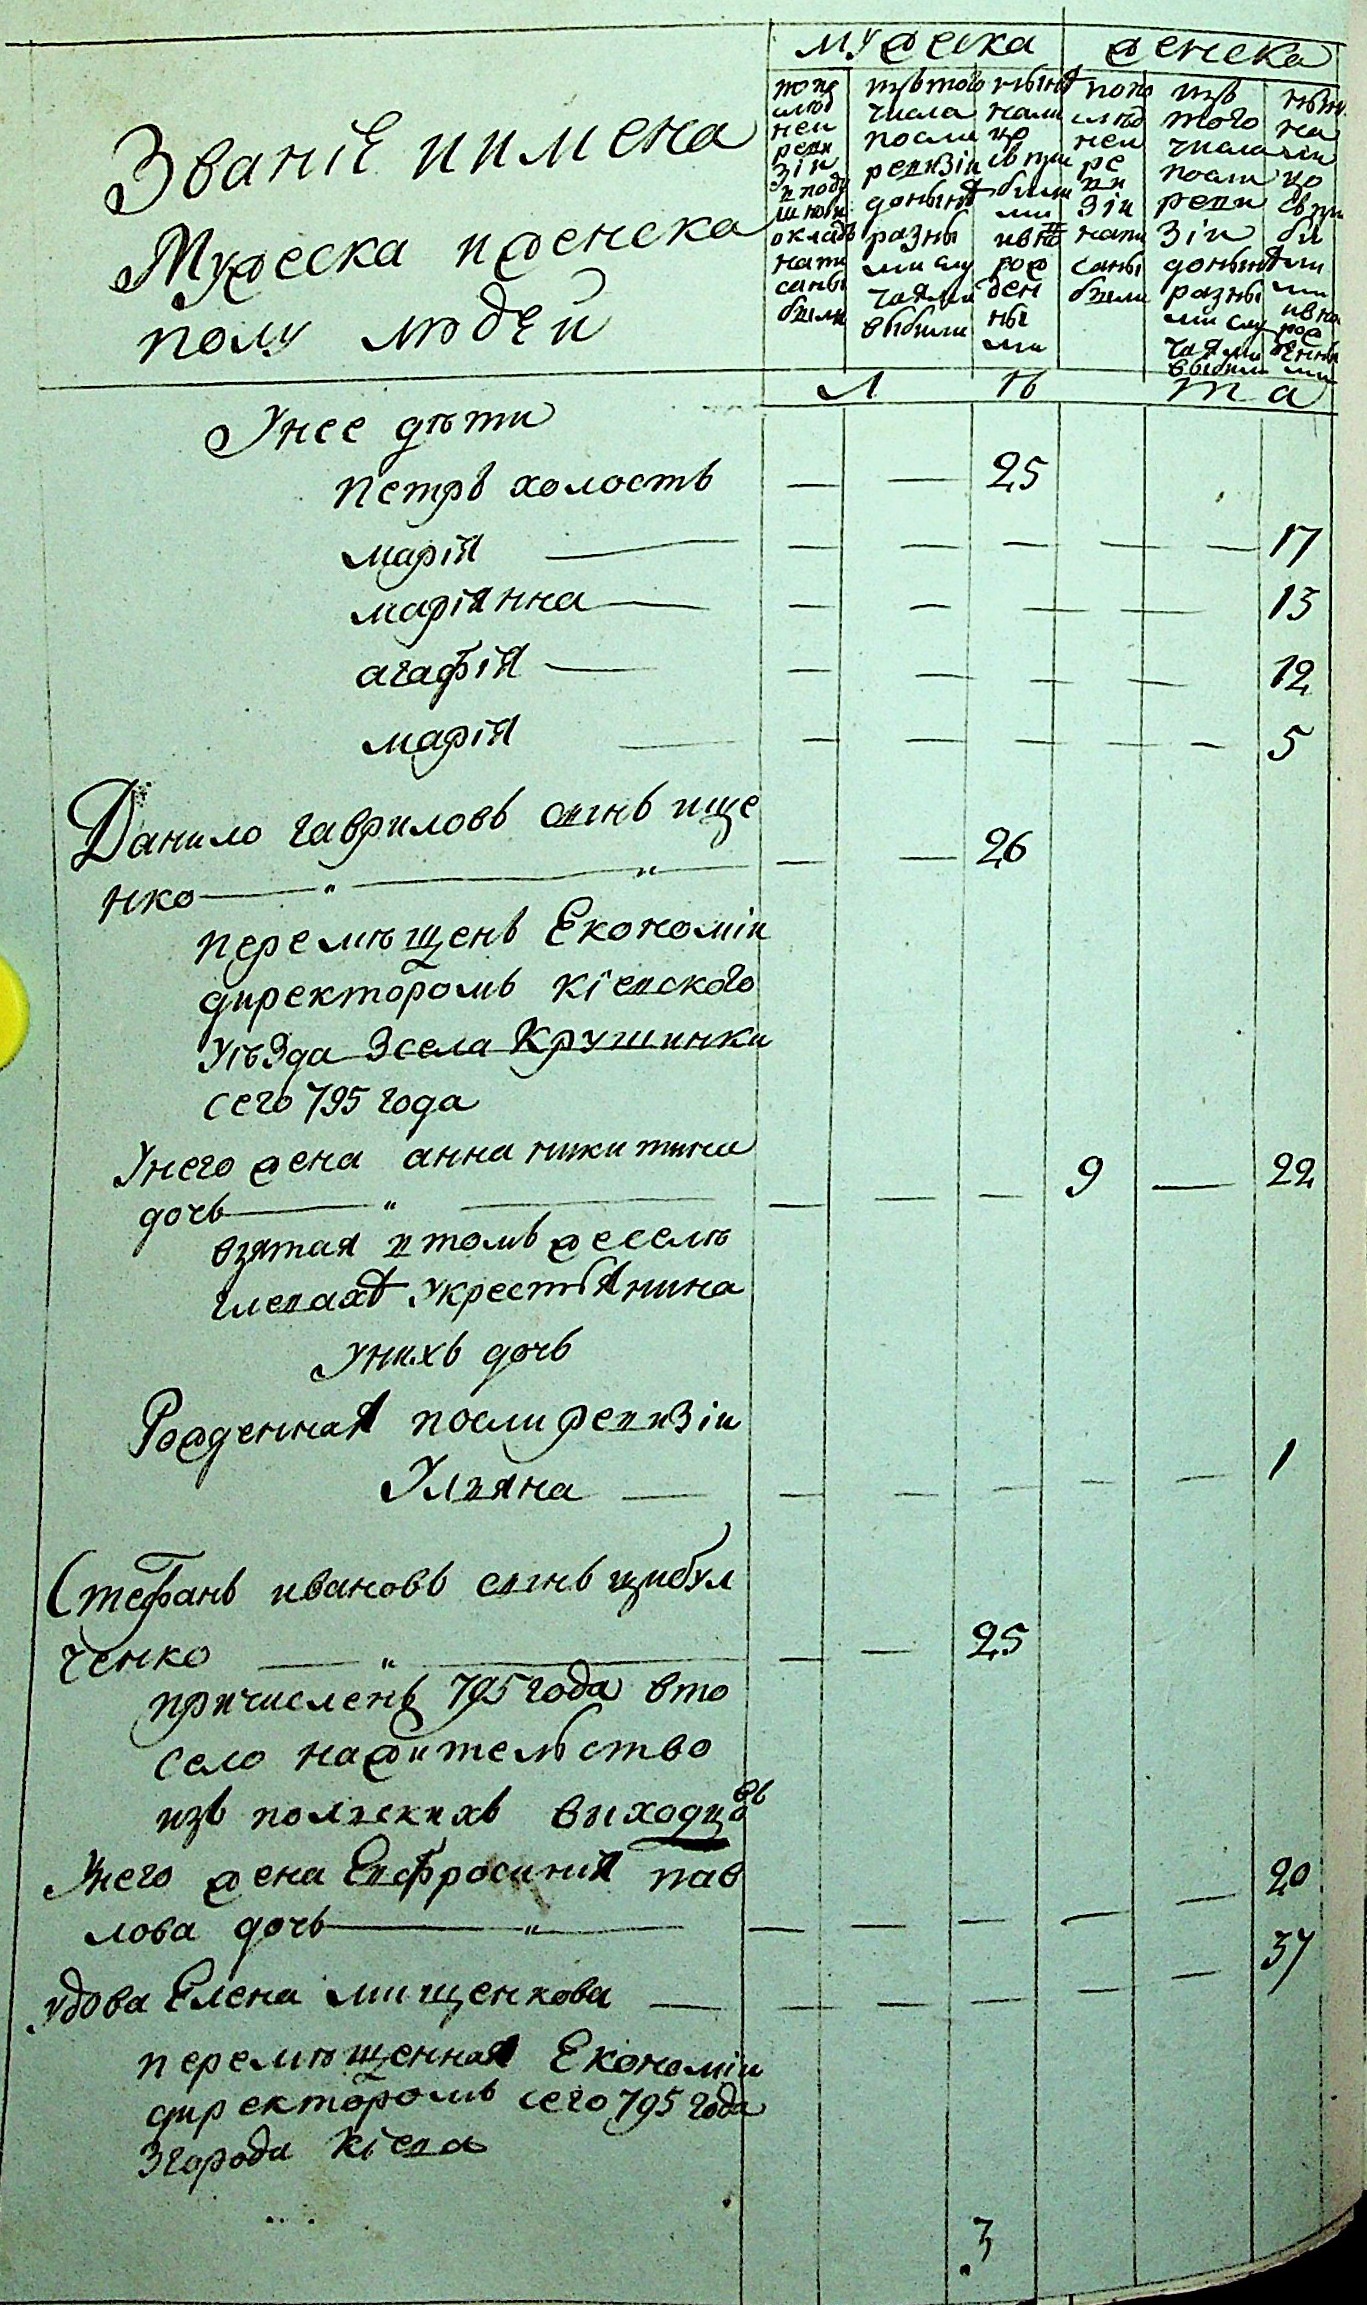 мужеска женска
Званіе и имена
Мужеска и женска
полу людей
по по
след
ней
реви
зіи
в поду
шном
окладѣ
напи
саны
были
изъ того
числа
посли
ревизіи
донынѣ
разны
ми слу
чаями
выбыли
нынѣ
нали
цо
съ при
былы
ми
и вно
рож
ден
ны
ми
по по
слѣд
ней
ре
ви
зіи
напи
саны
были
изъ
того
числа
посли
реви
зіи
донынѣ
разны
ми слу
чаями
выбыли
нынѣ
на
ли
цо
съ при
бы
лы
ми
и вно
рож
денны
ми
л ѣ т а
У нее дѣти
петръ холостъ — — 25
марія — — — — — — 17
маріянна — — — — — 13
агафія — — — — — 12
марія — — — — — — 5
Данило гавриловъ сынъ ище
нко — " — " — — — 26
перемѣщенъ Економіи
директоромъ кіевского
уѣзда з села Крушинки
сего 795 года
У него жена анна никитина
дочь — " — — — — 9 — 22
взятая в томъ же селѣ
глевахѣ у крестьянина
У нихъ дочь
Рожденная посли ревизіи
Уляна — — — — — — 1
Стефанъ ивановъ сынъ цибул
ченко — " — — — 25
причисленъ 795 года в то
село на жительство
изъ полскихъ выходцовъ
У него жена Евфросинія пав
лова дочь — " — — — — — — 20
удова Елена мищенкова — — — — — — 37
перемѣщенная Економіи
директоромъ сего 795 года
з города кіева
3